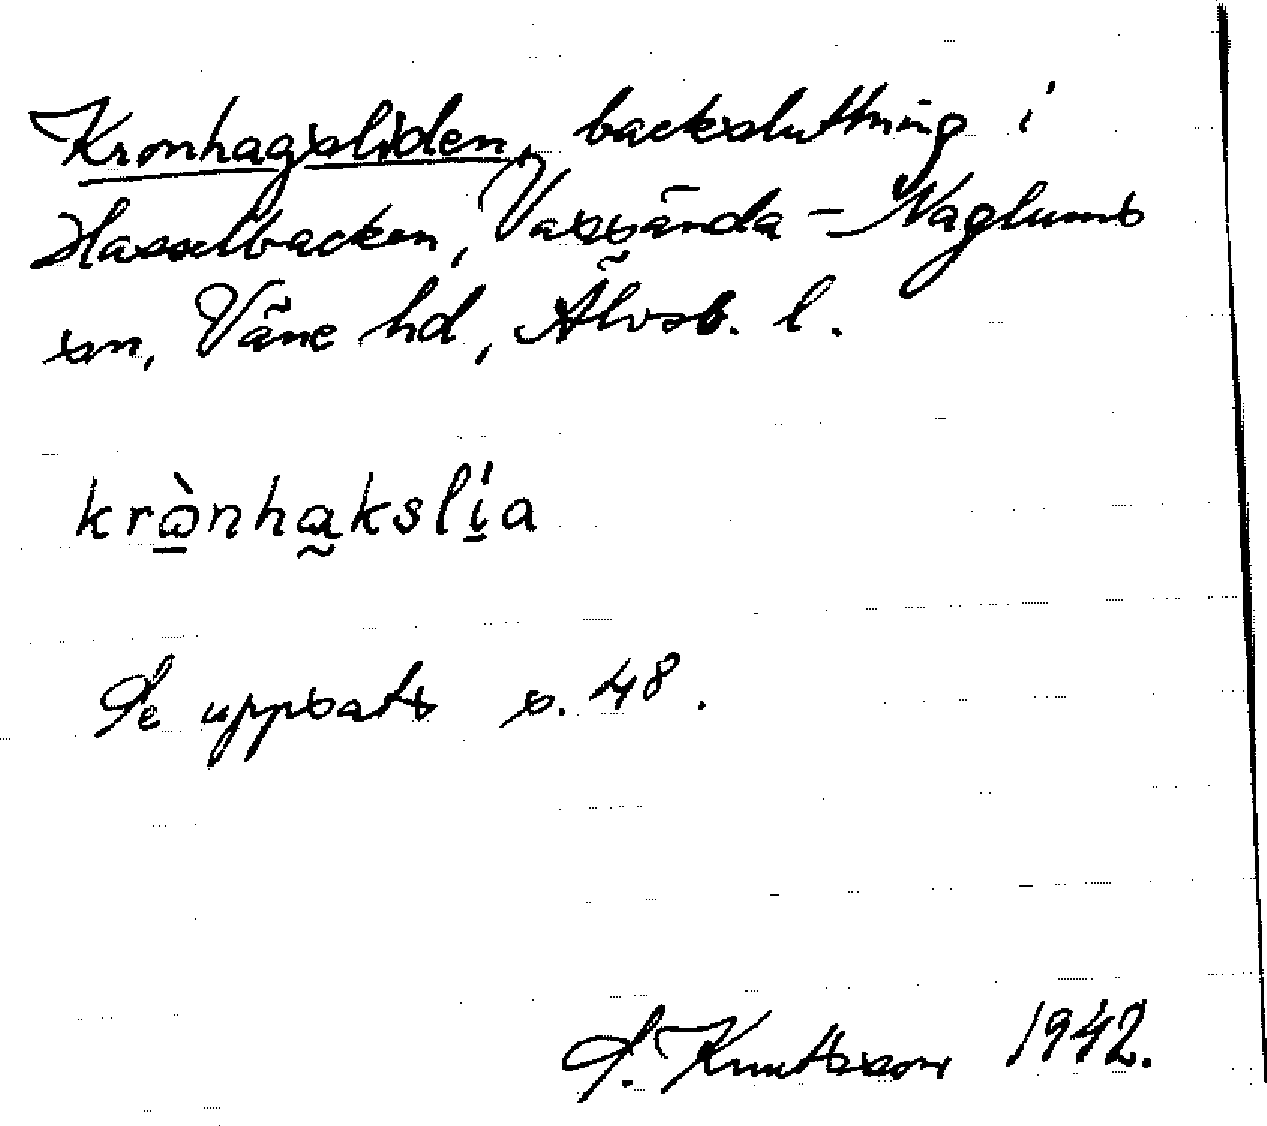 Kronhagsliden, backsluttning i
Hasselbacken, Vassända-Naglums
sn, Väne hd, Älvsb. l.
krànhakslía
Se uppsats s. 48.
S. Knutsson 1942.